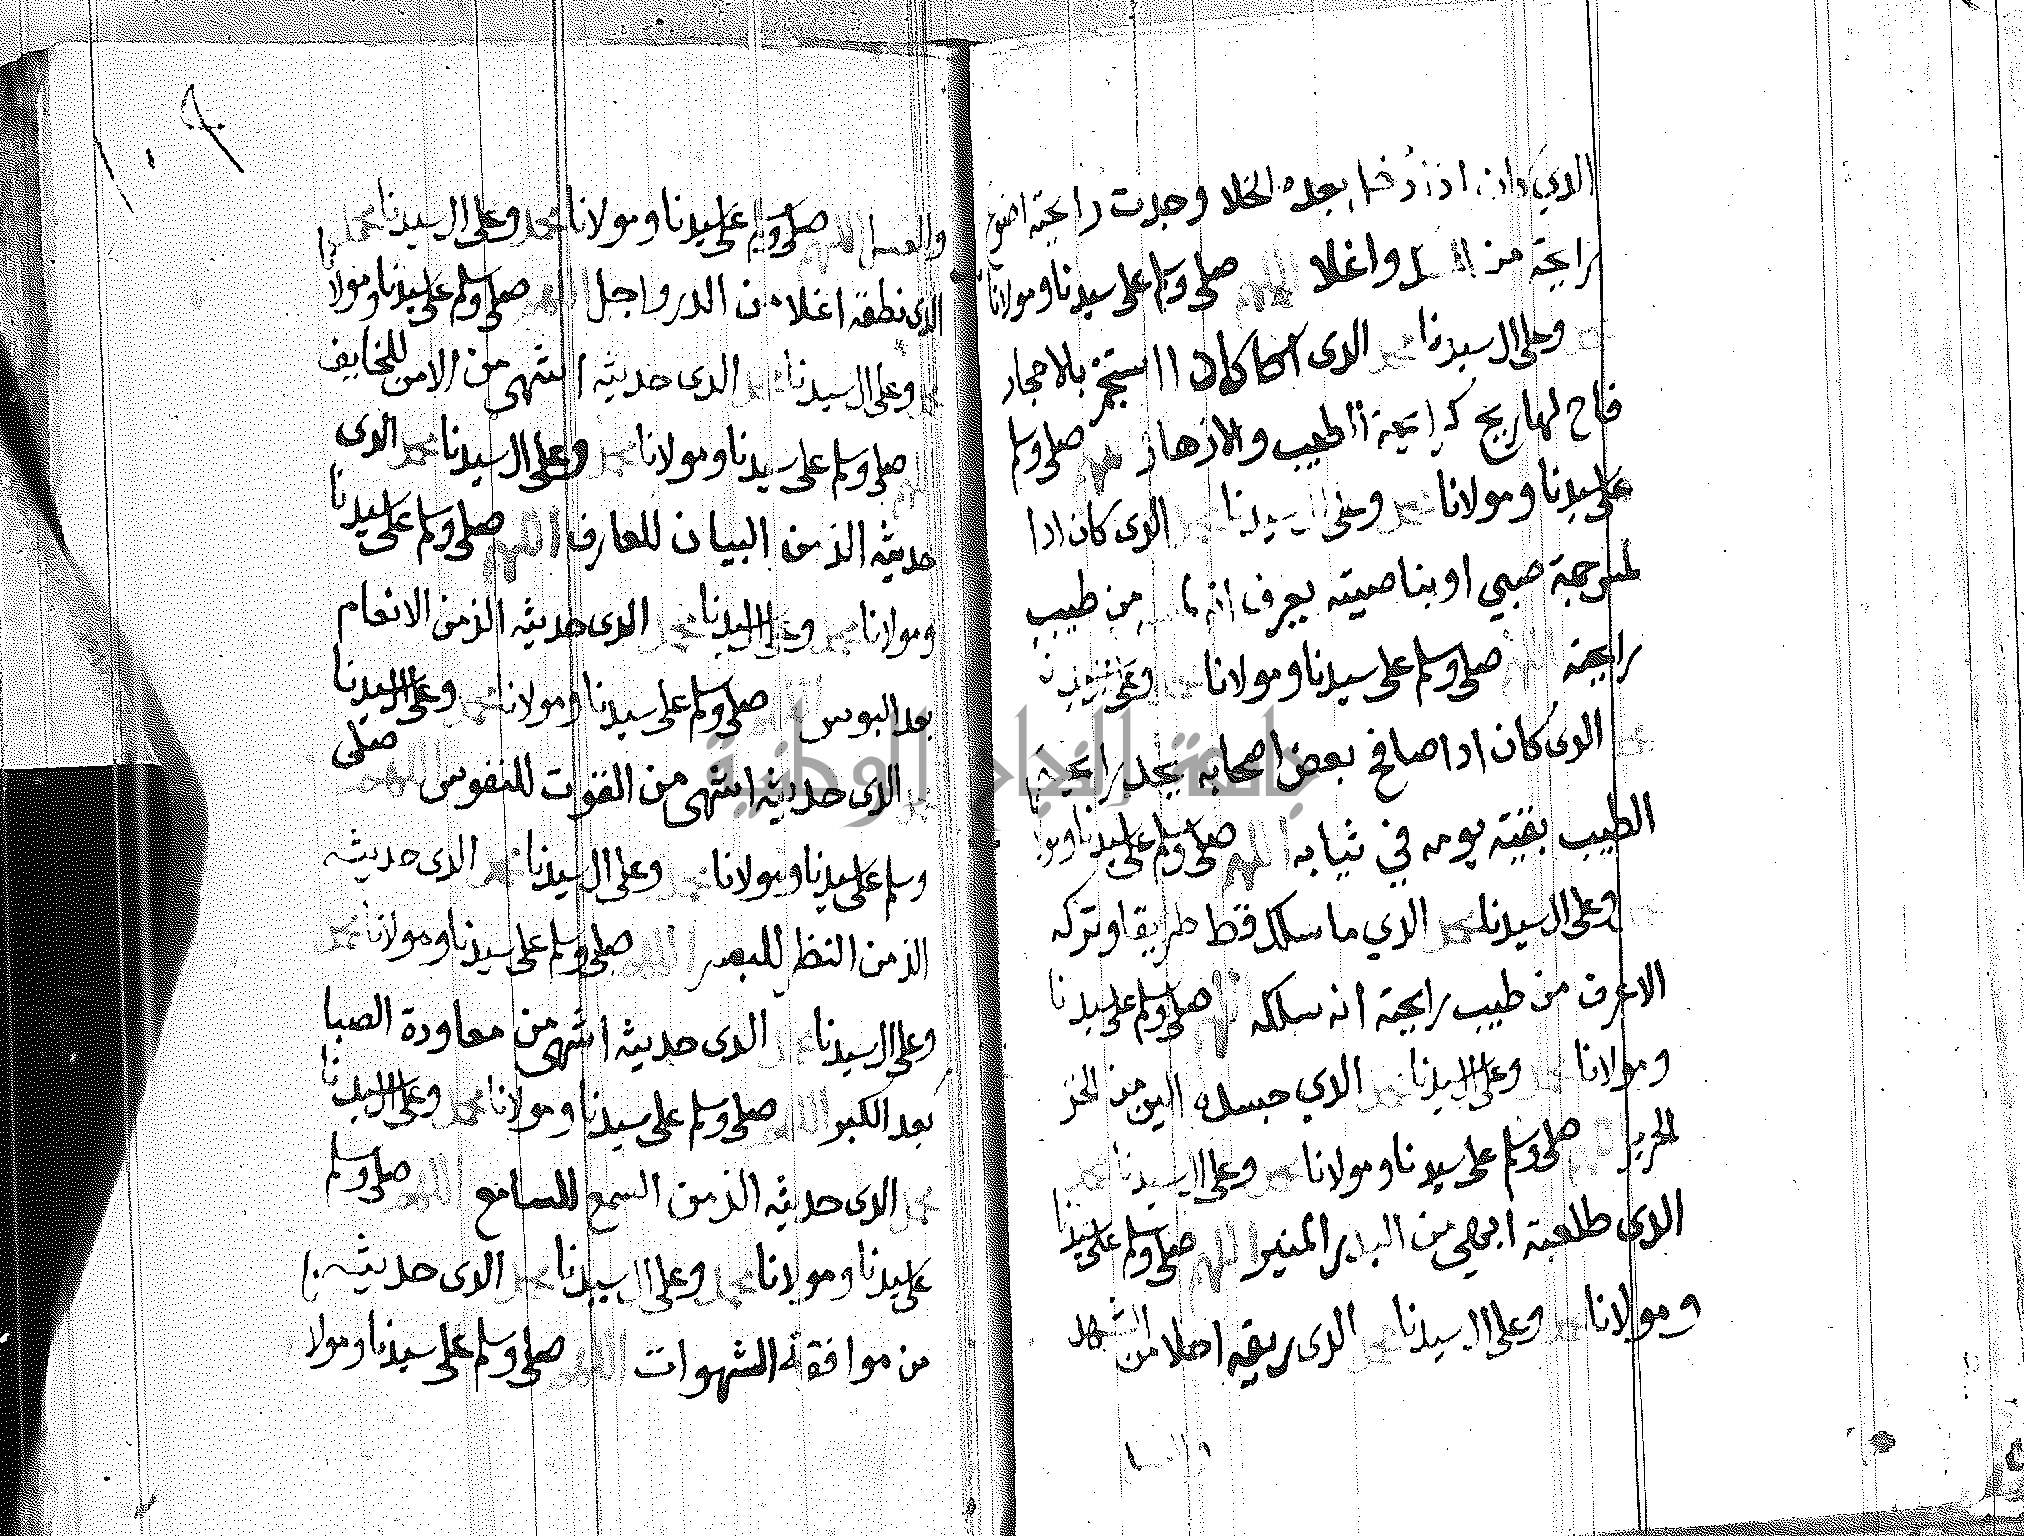 الدي اذا دخل بعده الخلا وجدت رايحة اضوع
رايحة من المسك واغلا اللهم صلي وسلم على سيدنا ومولانا
محمد وعلى ال سيدنا محمد الدى كان اذا استجمر بالاحجار
فاح لها ريح كرايحة الطيب والازهار اللهم صلي وسلم
على سيدنا ومولانا محمد وعلى ال سيدنا محمد الدى كان ادا
لمس وجهة صبي او بناصيته يعرف انه من طيب
رايحته اللهم صلي وسلم على سيدنا ومولانا محمد وعلى ال سيدنا
محمد الدى كان ادا صافح بعض اصحابه يجد رايحة
الطيب بقية يومه في ثيابه اللهم صلي وسلم على سيدنا ومولا
محمد وعلى ال سيدنا محمد الدي ما سلك قط طريقا وتركه
الا عرف من طيب رايحتة انه سلكه اللهم صلي وسلم على سيدنا
ومولانا محمد وعلى ال سيدنا محمد الدي جسده الين من الخز
الحرير اللهم صلي وسلم على سيدنا ومولانا محمد وعلى ال سيدنا محمد
الدى طلعته ابهى من البدر المنير اللهم صلي وسلم على سيدنا
ومولانا محمد وعلى ال سيدنا محمد الدى ريقه احلا من الشهد
والعسل
١٠٩
والعسل اللهم صلي وسلم على سيدنا ومولانا محمد وعلى ال سيدنا محمد
الدى نطقه اغلا من الدر واجل اللهم صلي وسلم على سيدنا ومولانا
محمد وعلى ال سيدنا محمد الدى حديثه اشهى من الامن للخايف
اللهم صلي وسلم على سيدنا ومولانا محمد وعلى ال سيدنا محمد الدى
حديثه الذ من البيان للعارف اللهم صلي وسلم على سيدنا
ومولانا محمد وعلى ال سيدنا محمد الدى حديثه الذ من الانعام
بعد البوس اللهم صلي وسلم على سيدنا ومولانا محمد وعلى ال سيدنا
محمد الدى حديثه اشهى من القوت للنفوس اللهم صلى
وسلم على سيدنا ومولانا محمد وعلى ال سيدنا محمد الدى حديثه
الذ من النظر للبصر اللهم صلي وسلم على سيدنا ومولانا محمد
وعلى ال سيدنا محمد الدى حديثه اشهى من معاودة الصبا
بعد الكبر اللهم صلي وسلم على سيدنا ومولانا محمد وعلى ال سيدنا
محمد الدى حديثه الذ من السمع للسامع اللهم صلي وسلم
على سيدنا ومولانا محمد وعلى ال سيدنا محمد الدى حديثه
من موافقة الشهوات اللهم صلي وسلم على سيدنا ومولا
جامعة النجاح الوطنية